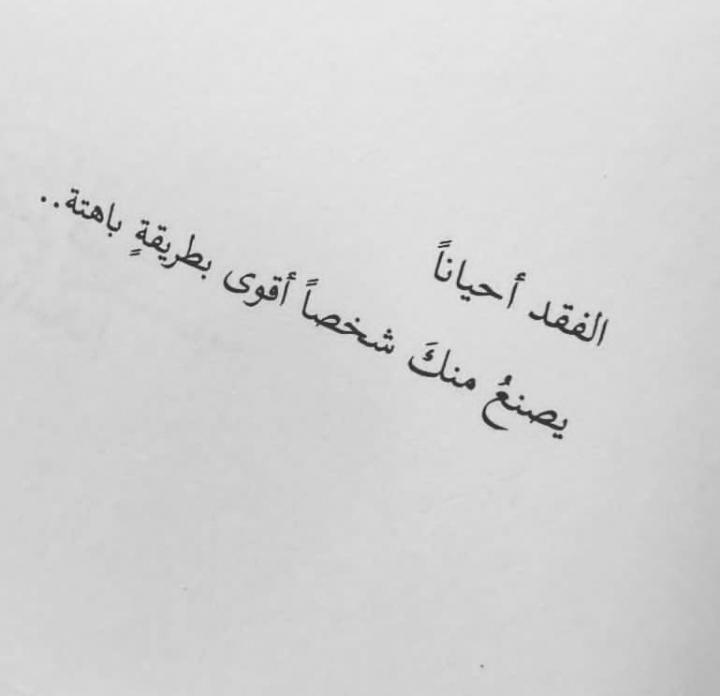 الفقد أحياناً
يصنعُ منكَ شخصاً أقوى بطريقةٍ باهتة..